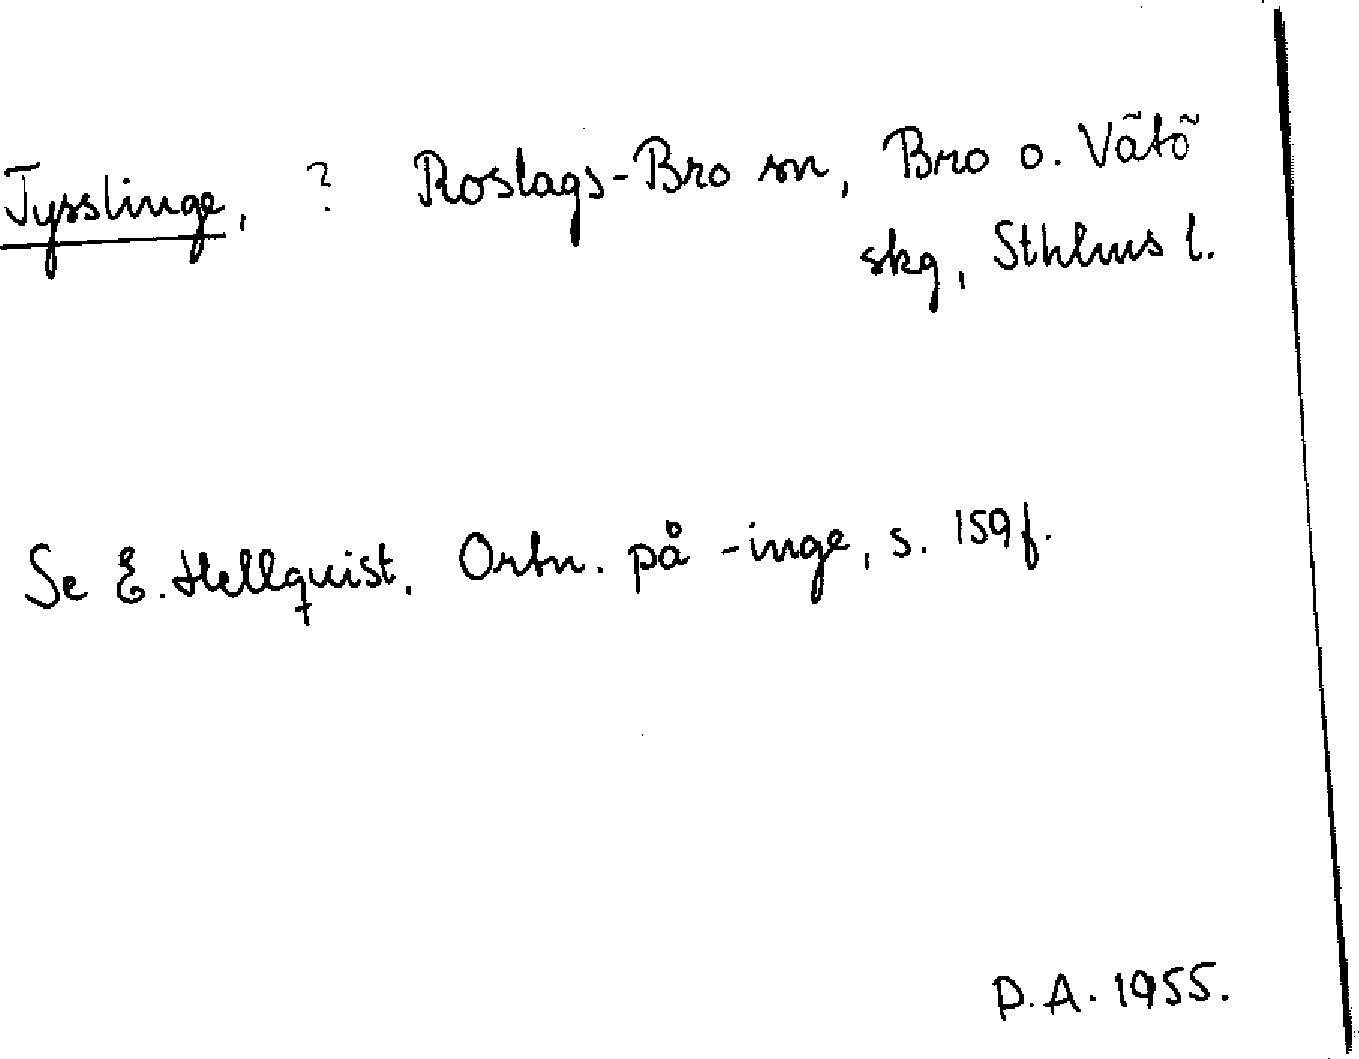 Tysslinge, ? Roslags-Bro sn, Bro o. Vätö
skg, Sthlms l.
Se E. Hellquist. Ortn. på -inge, s. 159 f.
P.A. 1955.